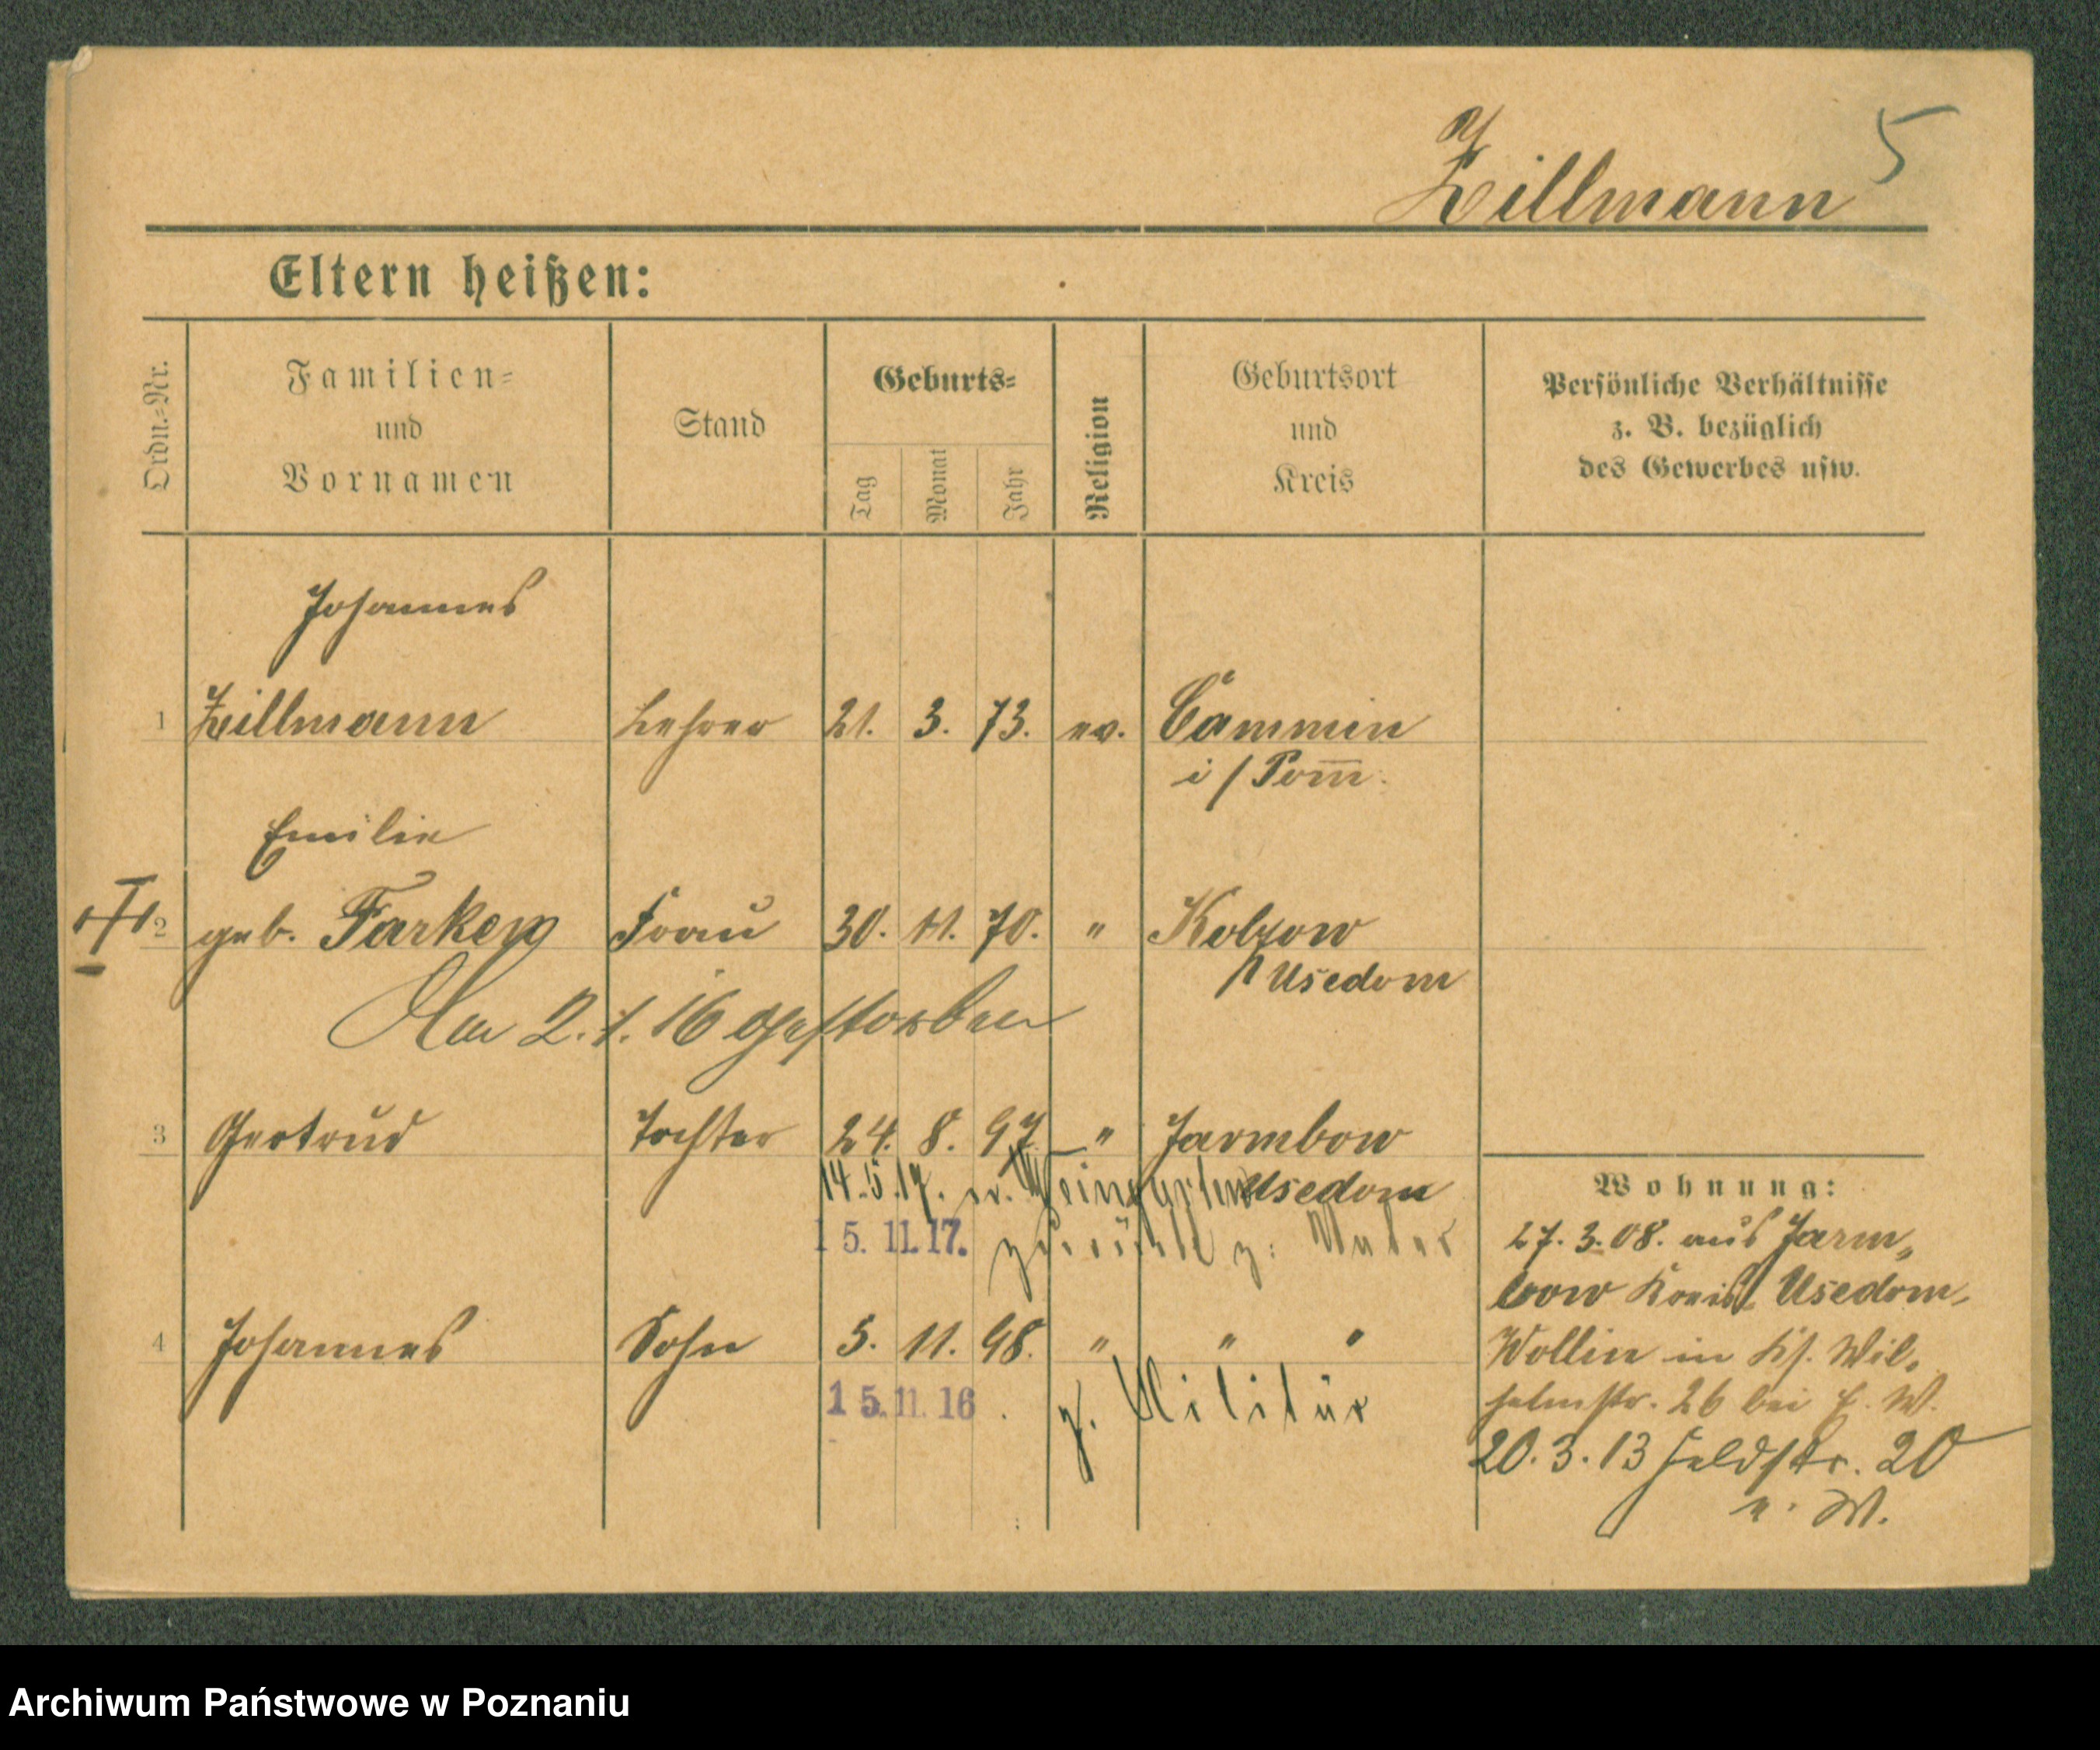 5
Zillmann
Eltern heißen:
Ordn.-Nr.
Familien-
und
Vornamen
Stand
Geburts-
Tag
Monat
Jahr
Religion
Geburtsort
und
Kreis
Persönliche Verhältnisse
z. B. bezüglich
des Gewerbes usw.
Johannes
1 Zillmann Lehrer 21. 3. 73. ev. Cammin
i/Pom̅.
Emilie
2 geb. Frau 30. 11. 70. " Kolzow
Usedom
Am 2. 1. 16 gestorben
3 Gertrud Tochter 24. 8. 97. " Jarmbow
14.5.17. n. Weingarten Usedom
15.11.17. zurück z. Vater
4 Johannes Sohn 5. 11. 98. " " "
15.11.16. z. Militär
Wohnung:
27.3.08. aus Jarm„
bow Kreis Usedom-
Wollin in Wil-
helmstr. 26 bei E. W.
20.3.13 Feldstr. 20
W.
Archiwum Państwowe w Poznaniu